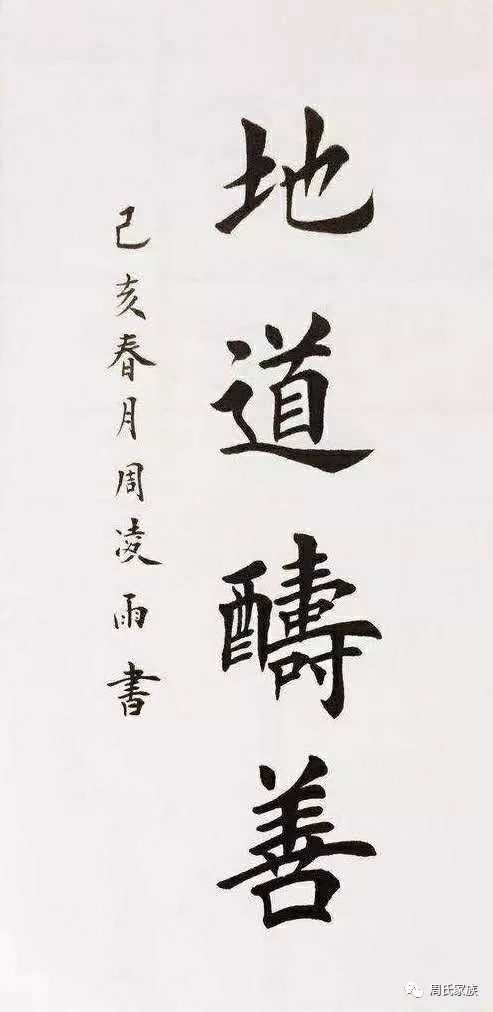 地道醻善
己亥春月周凌雨書
周氏家族